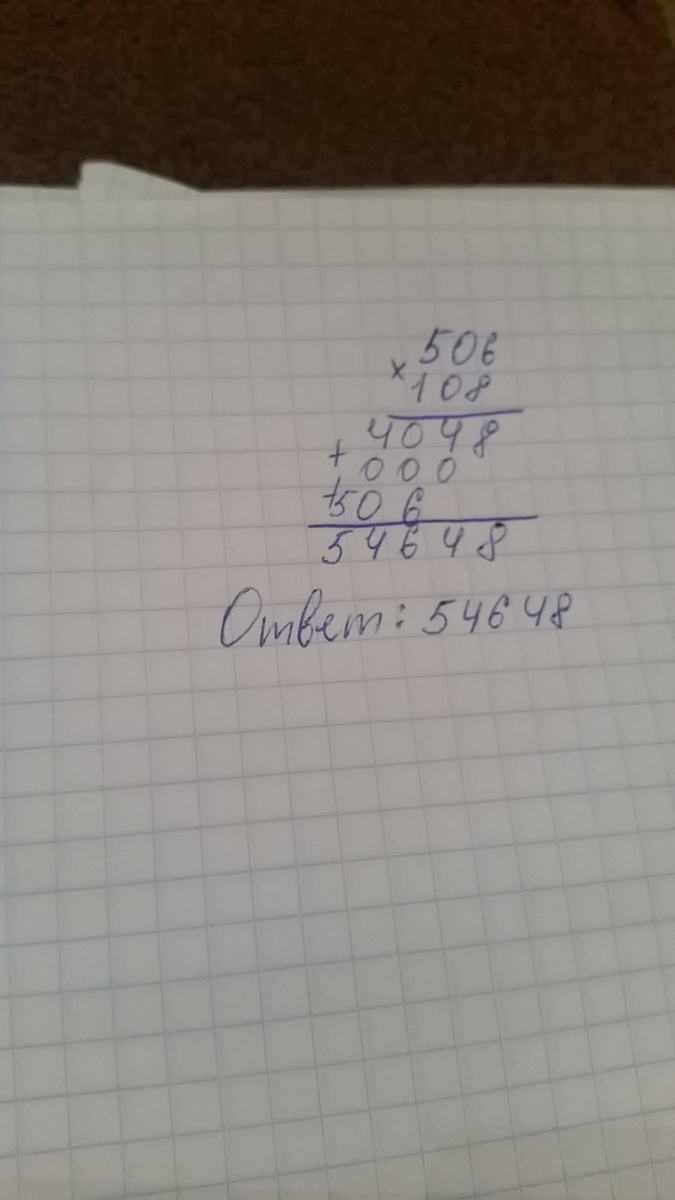 506
× 108
4048
+ 000
+ 506
54648
Ответ: 54648